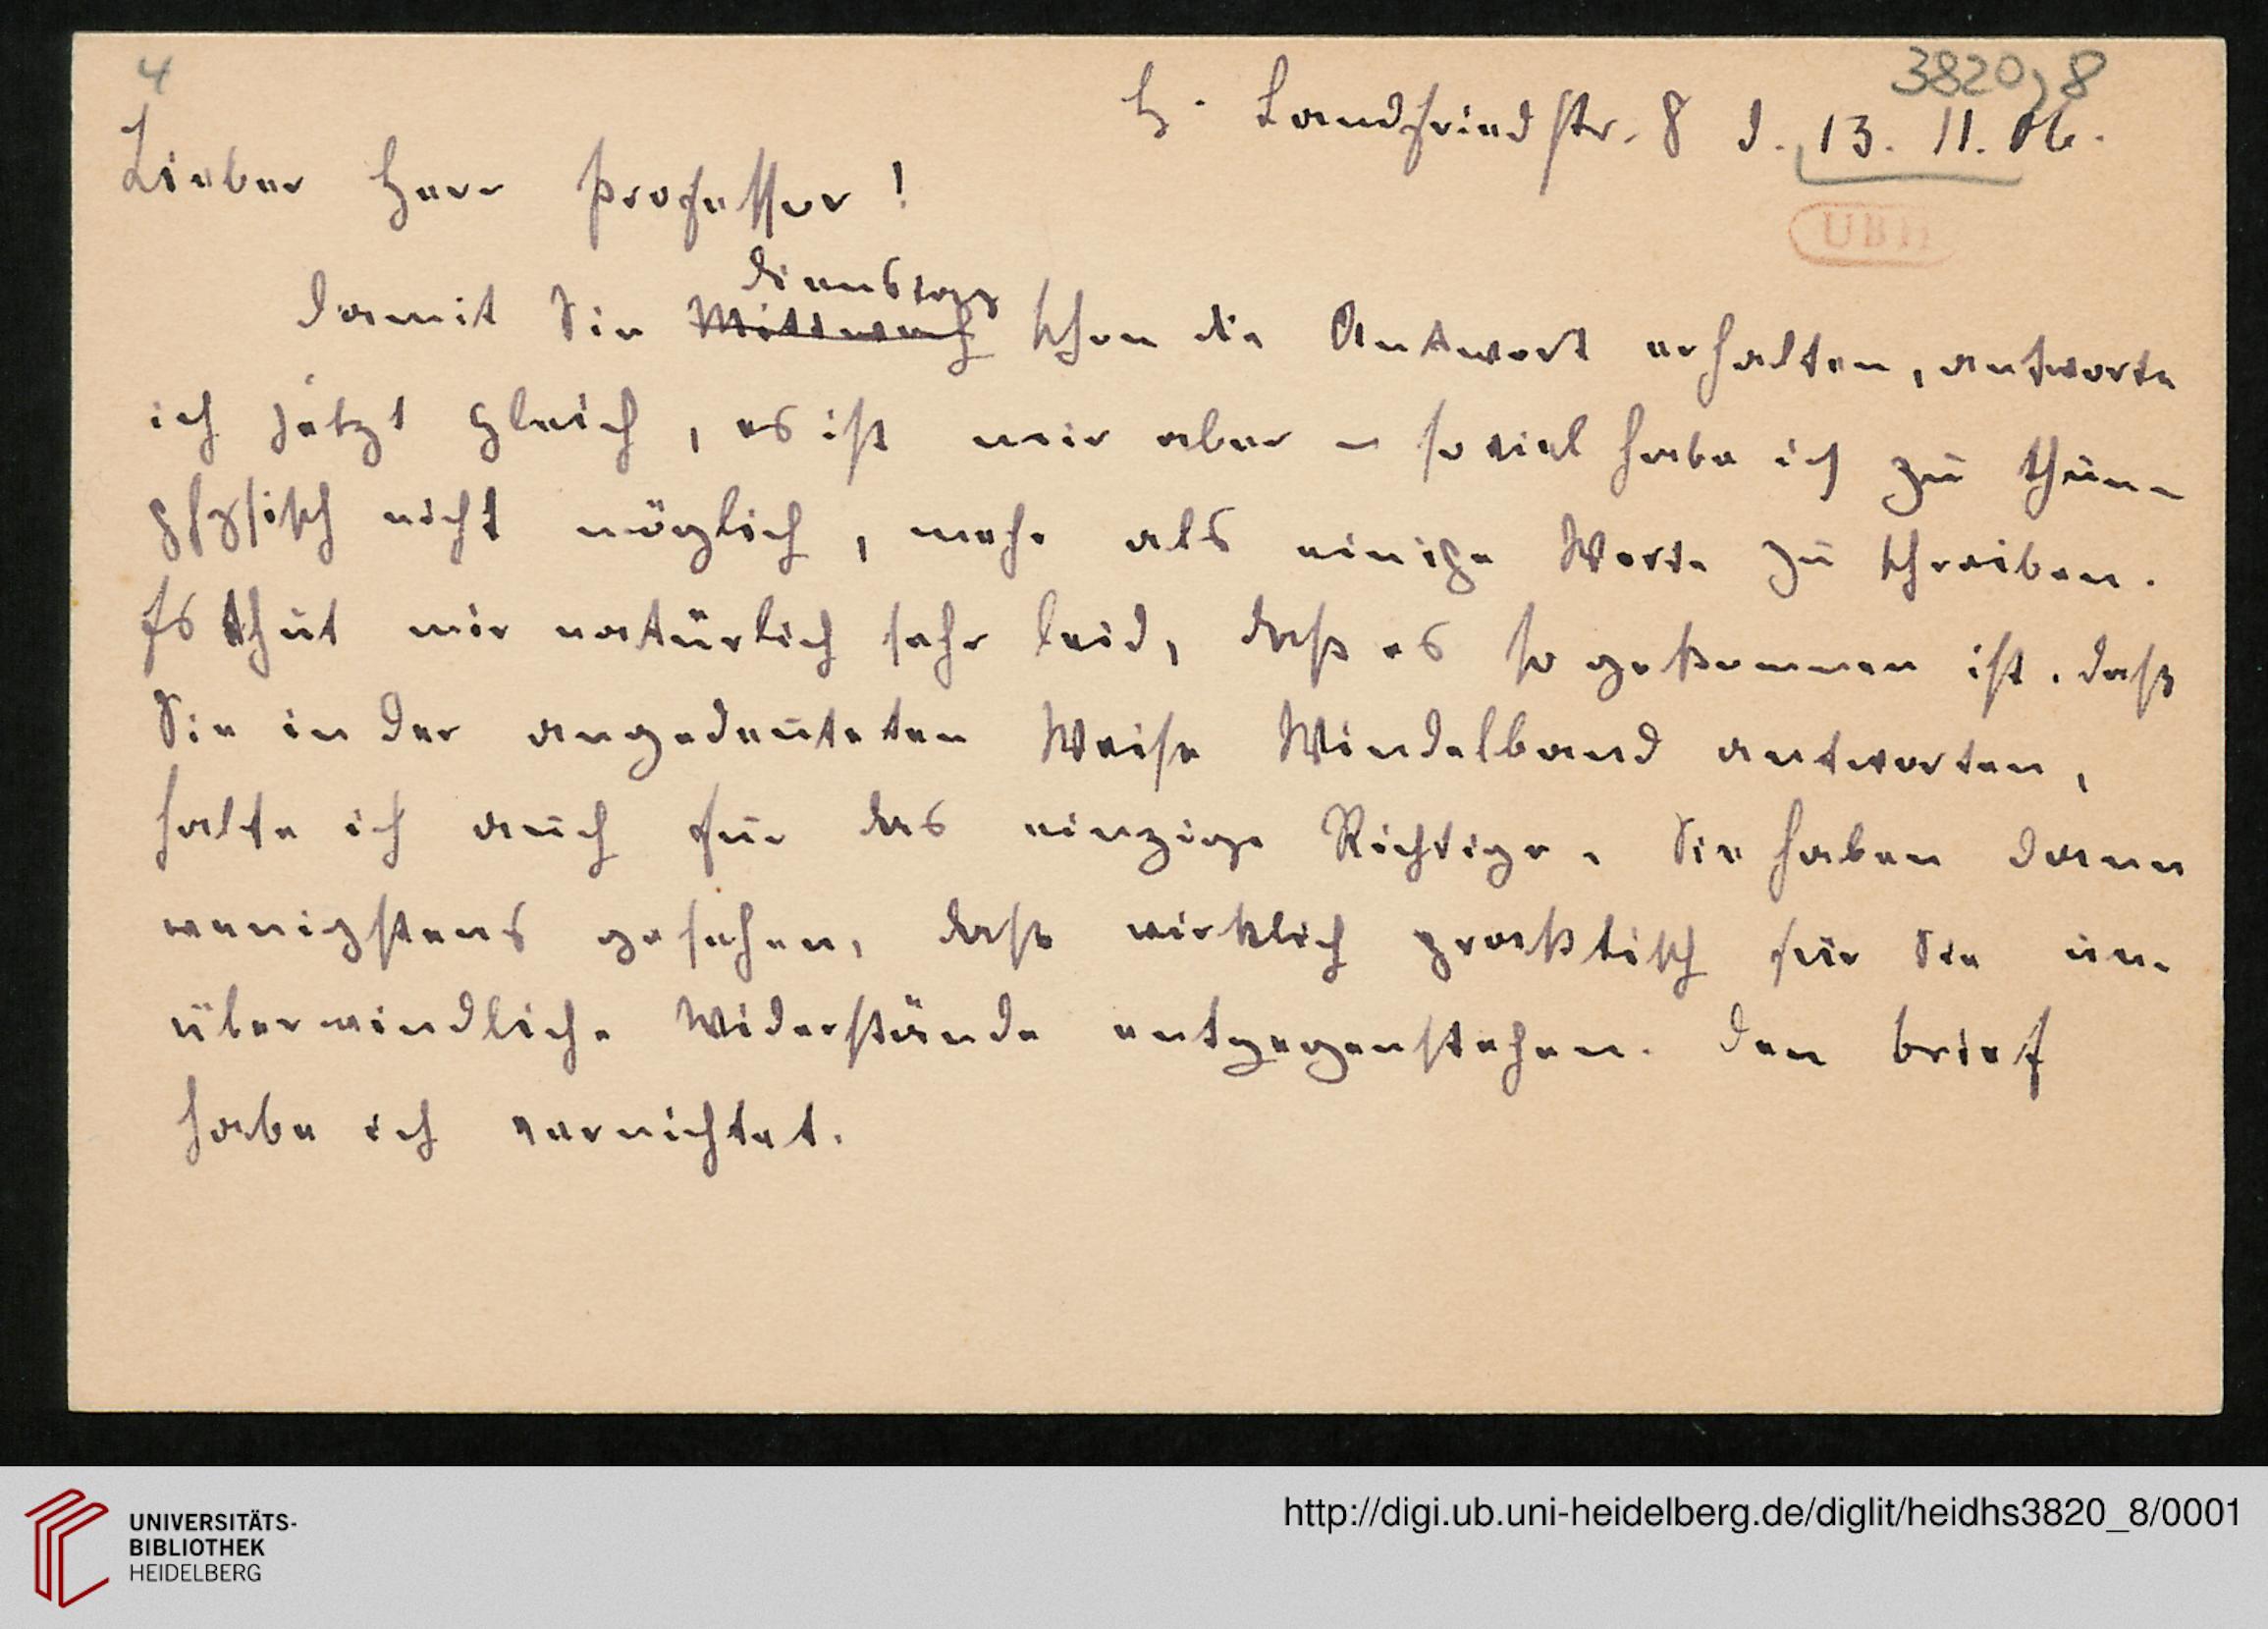 4
3820,8
H. Landfriedstr. 8 d. 13. 11. 06.
Lieber Herr Professor!
UBH
Dienstag
Damit Sie Mittwoch schon die Antwort erhalten, antworte
ich jetzt gleich, es ist mir aber – so viel habe ich zu thun –
physisch nicht möglich, mehr als einige Worte zu schreiben.
Es thut mir natürlich sehr leid, daß es so gekommen ist. Daß
Sie in der angedeuteten Weise Windelband antworten,
halte ich auch für das einzige Richtige. Sie haben dann
wenigstens gesehen, daß wirklich praktisch für Sie un-
überwindliche Widerstände entgegenstehen. Den Brief
habe ich vernichtet.
UNIVERSITÄTS-
BIBLIOTHEK
HEIDELBERG
http://digi.ub.uni-heidelberg.de/diglit/heidhs3820_8/0001